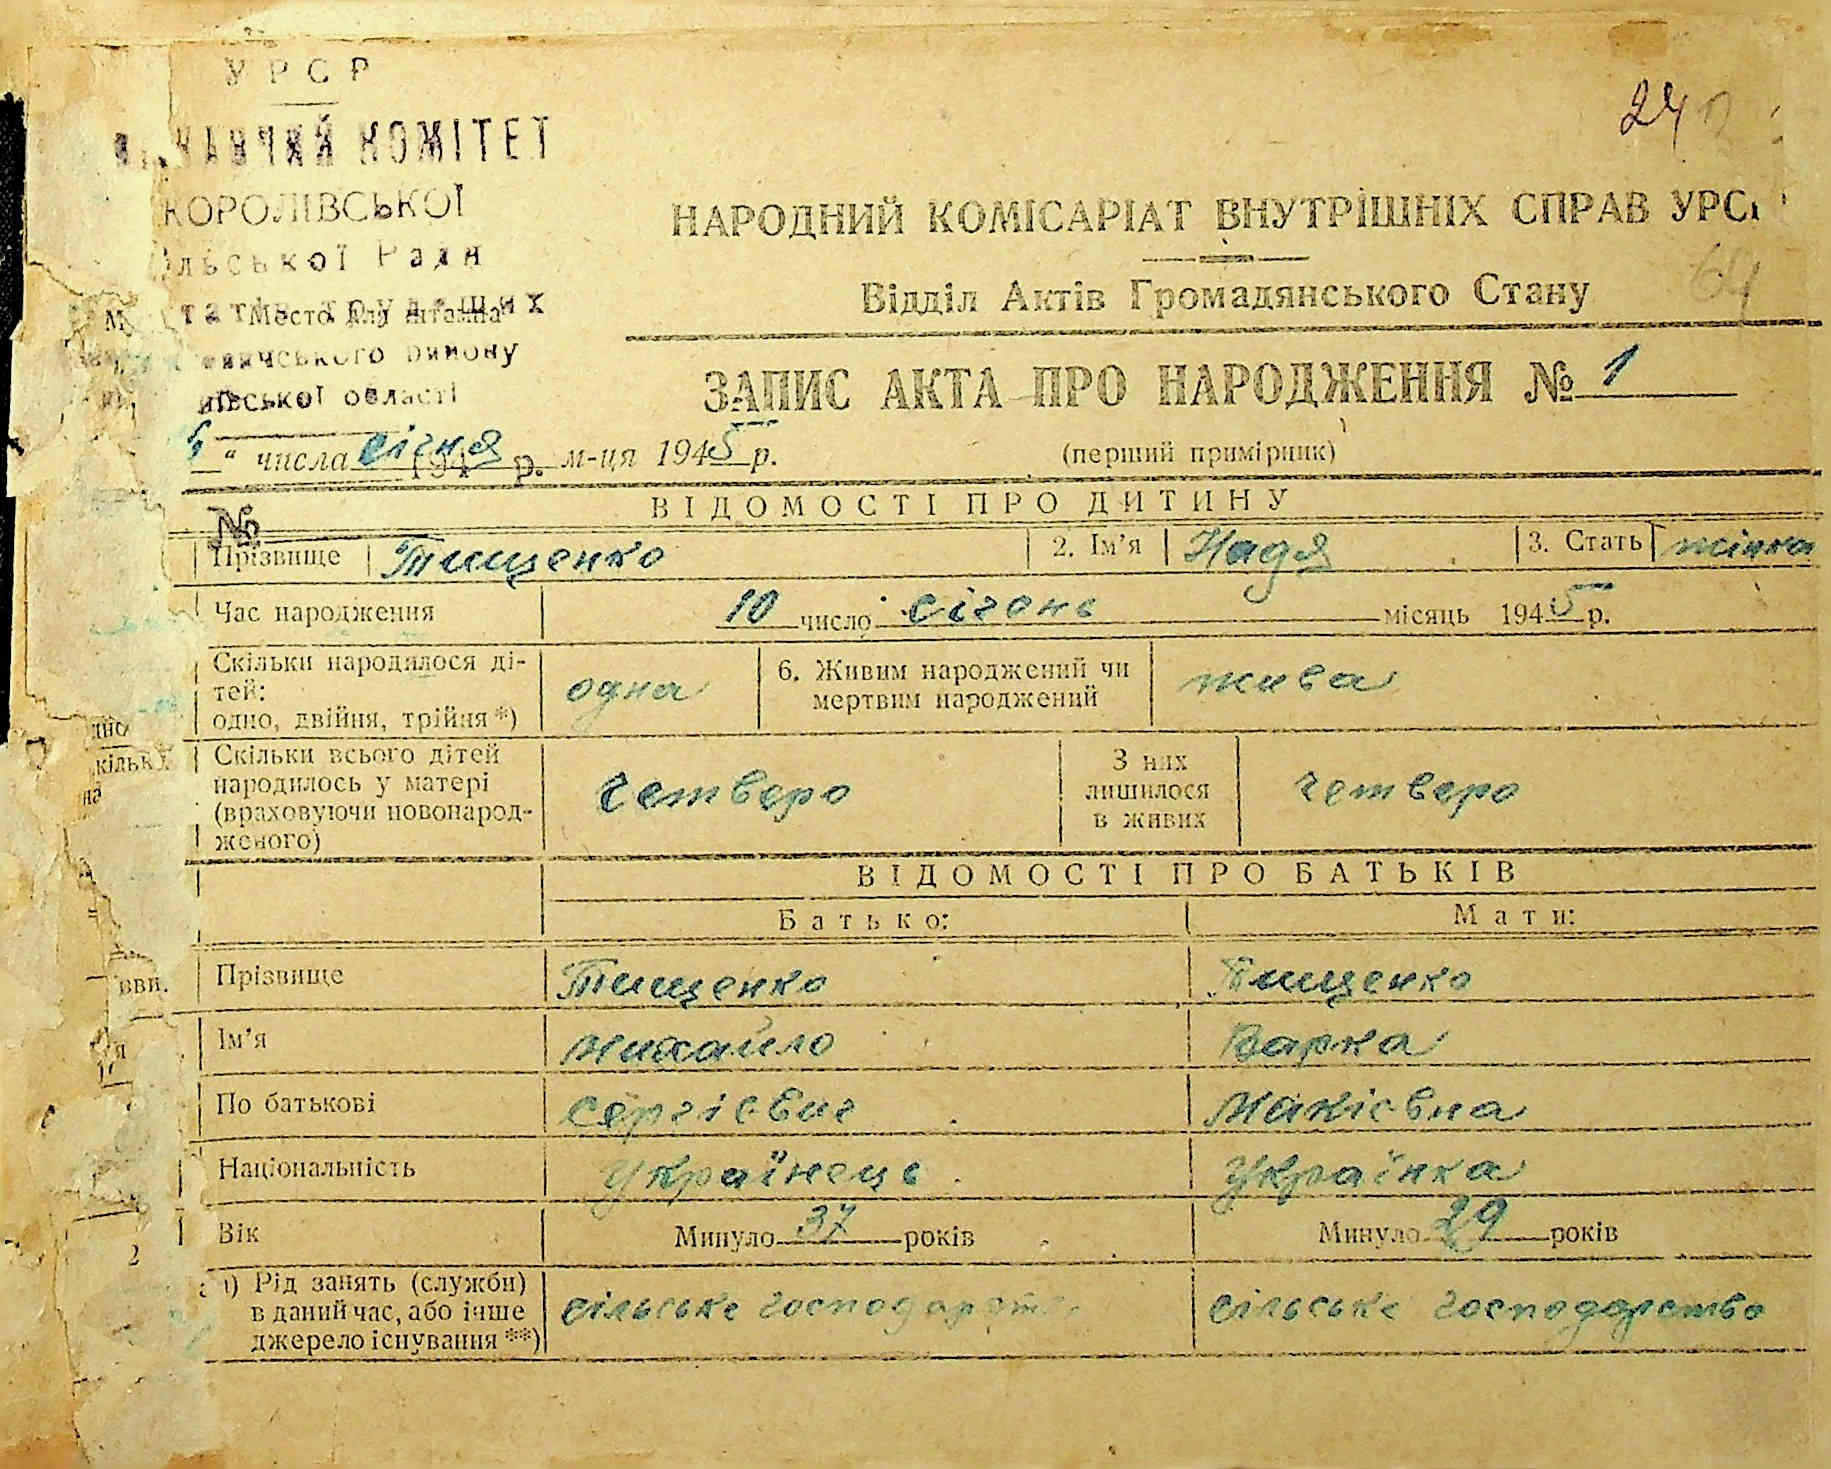 УРСР
КОМІТЕТ
КОРОЛІВСЬКОЇ
Ради
Место для штампа
району
області
24
НАРОДНИЙ КОМІСАРІАТ ВНУТРІШНІХ СПРАВ УРС
64
Відділ Актів Громадянського Стану
ЗАПИС АКТА ПРО НАРОДЖЕННЯ № 1
(перший примірник)
" числа січня м-ця 1945 р.
194 р.
ВІДОМОСТІ ПРО ДИТИНУ
№
Прізвище Тищенко 2. Ім'я Надя 3. Стать жінка
Час народження 10 число січень місяць 1945 р.
Скільки народилося ді-
тей:
одно, двійня, трійня*) одна 6. Живим народжений чи
мертвим народжений жива
Скільки всього дітей
народилось у матері
(враховуючи новонарод-
женого) четверо З них
лишилося
в живих четверо
ВІДОМОСТІ ПРО БАТЬКІВ
Батько: Мати:
Прізвище Тищенко Тищенко
Ім'я Михайло Варка
По батькові Сергієвич Макієвна
Національність Українець Українка
Вік Минуло 37 років Минуло 29 років
а) Рід занять (служби)
в даний час, або інше
джерело існування**) сільське господарство сільське господарство